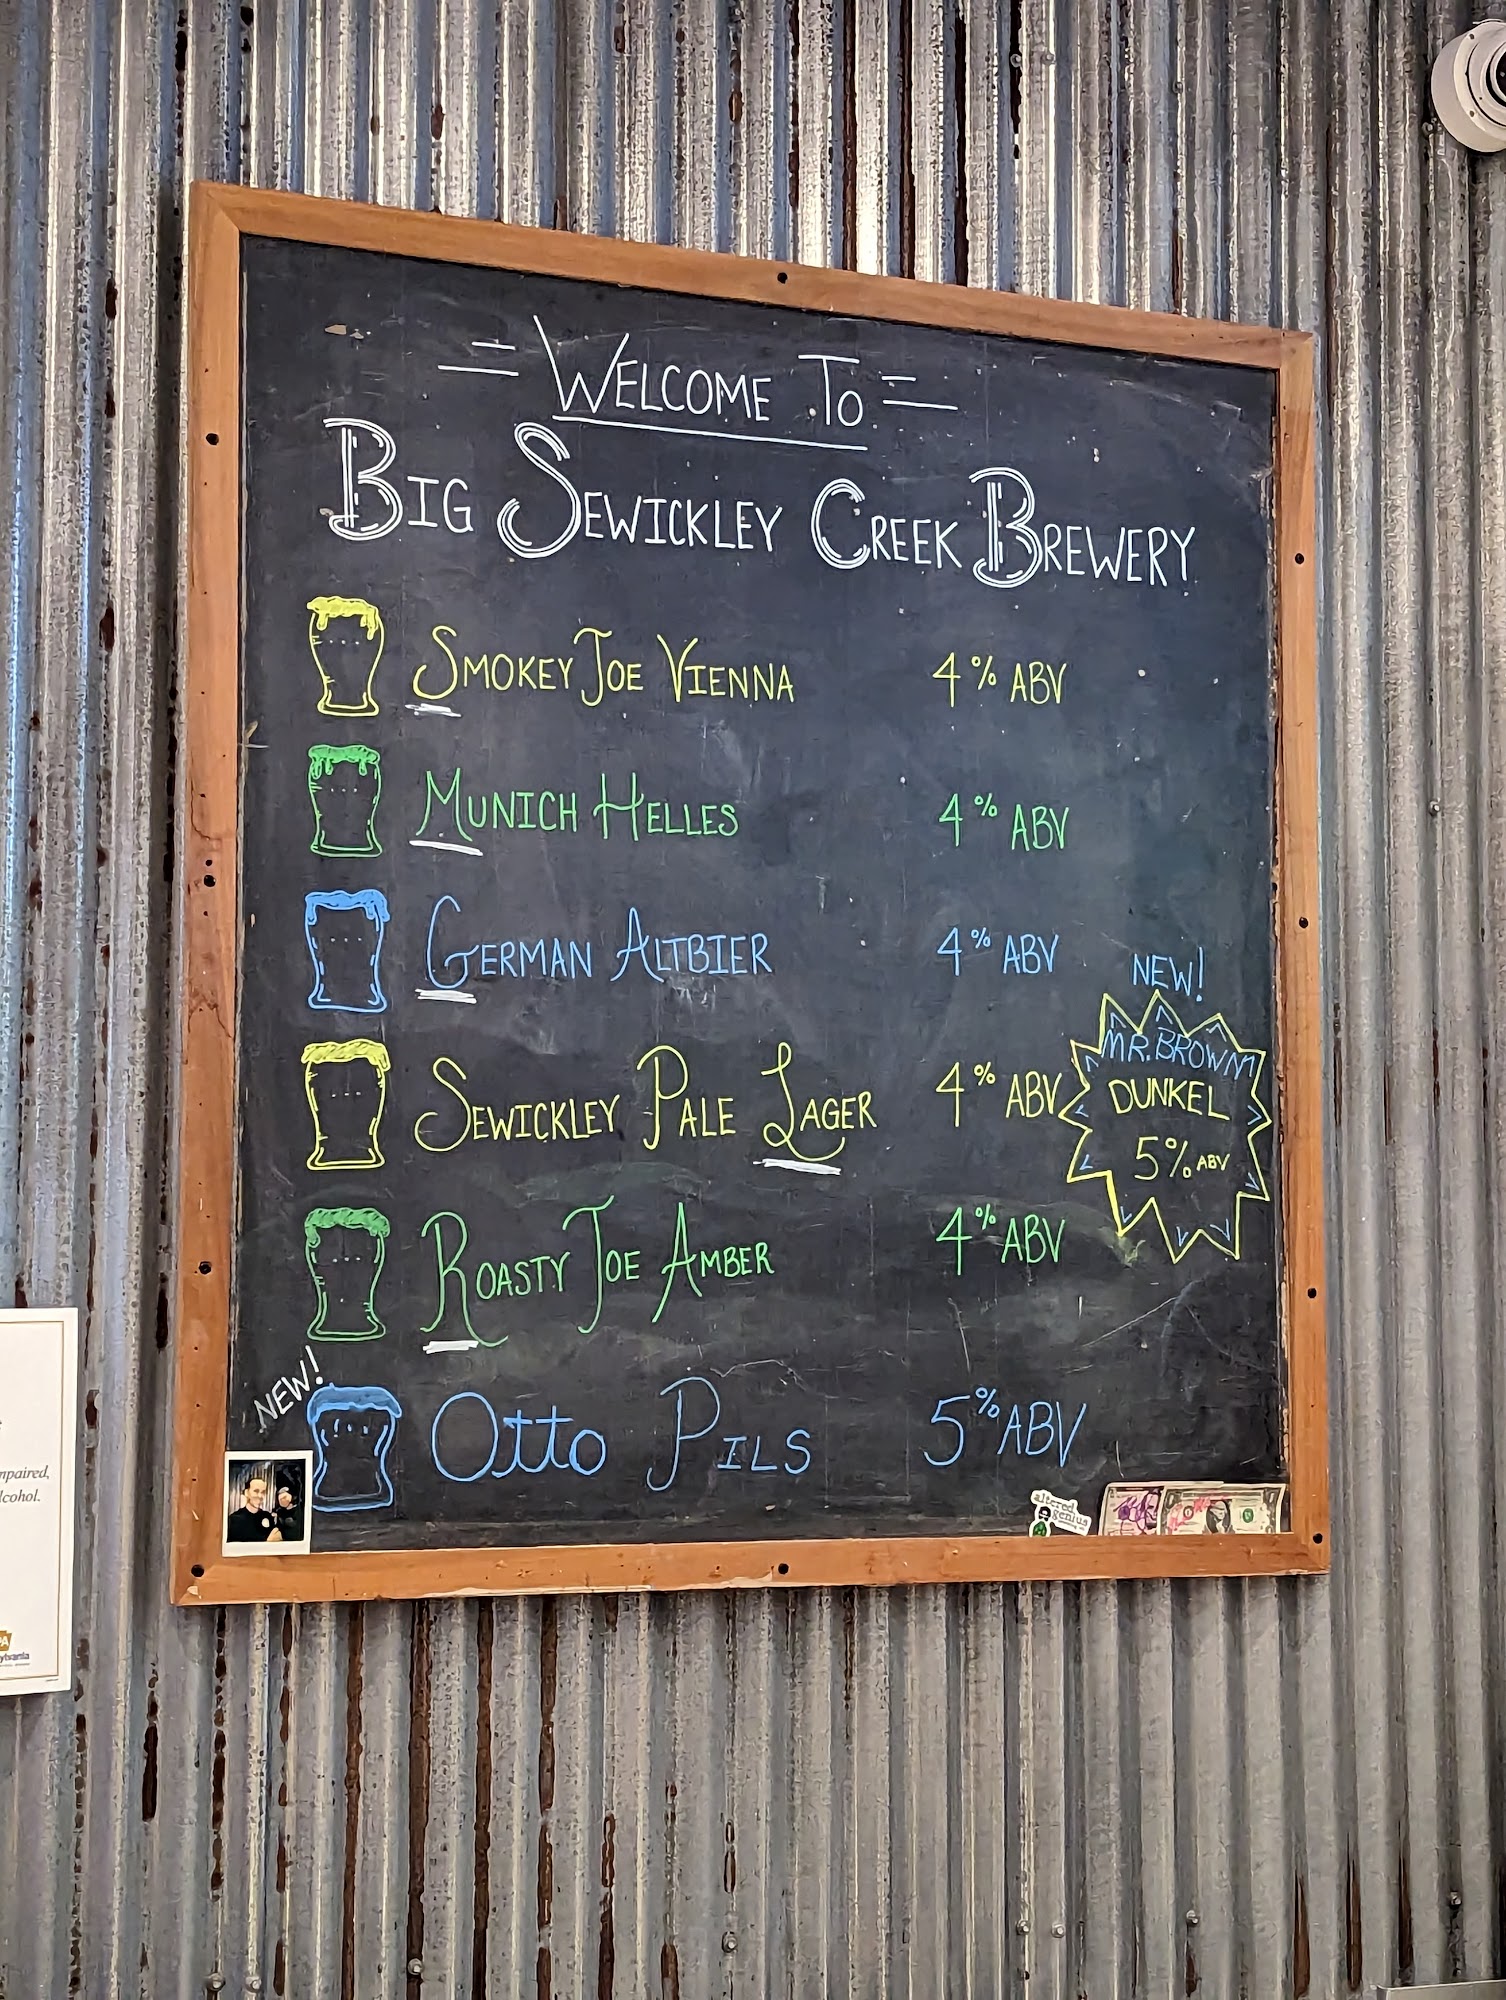 = WELCOME TO =
BIG SEWICKLEY CREEK BREWERY
SMOKEY JOE VIENNA 4% ABV
MUNICH HELLES 4% ABV
GERMAN ALTBIER 4% ABV
SEWICKLEY PALE LAGER 4% ABV
ROASTY JOE AMBER 4% ABV
NEW!
Otto PILS 5% ABV
NEW!
MR. BROWN
DUNKEL
5% ABV
altered
genius
mpaired,
lcohol.
PA